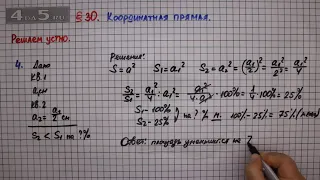 4на5.ru
§ 30. Координатная прямая.
Решаем устно.
4. Дано
кв. 1
a₁ см
кв. 2
a₂ = a₁/2 см
S₂ < S₁ на ? %
Решение:
S = a² S₁ = a₁² S₂ = a₂² = (a₁/2)² = a₁²/2² = a₁²/4
S₂/S₁ = a₁²/4 : a₁² = a₁²/4·a₁² · 100% = 1/4 · 100% = 25%
S₁ - 100%
S₂ - 25% на ? % м. 100% - 25% = 75% (мен)
Ответ: площадь уменьшится на 7